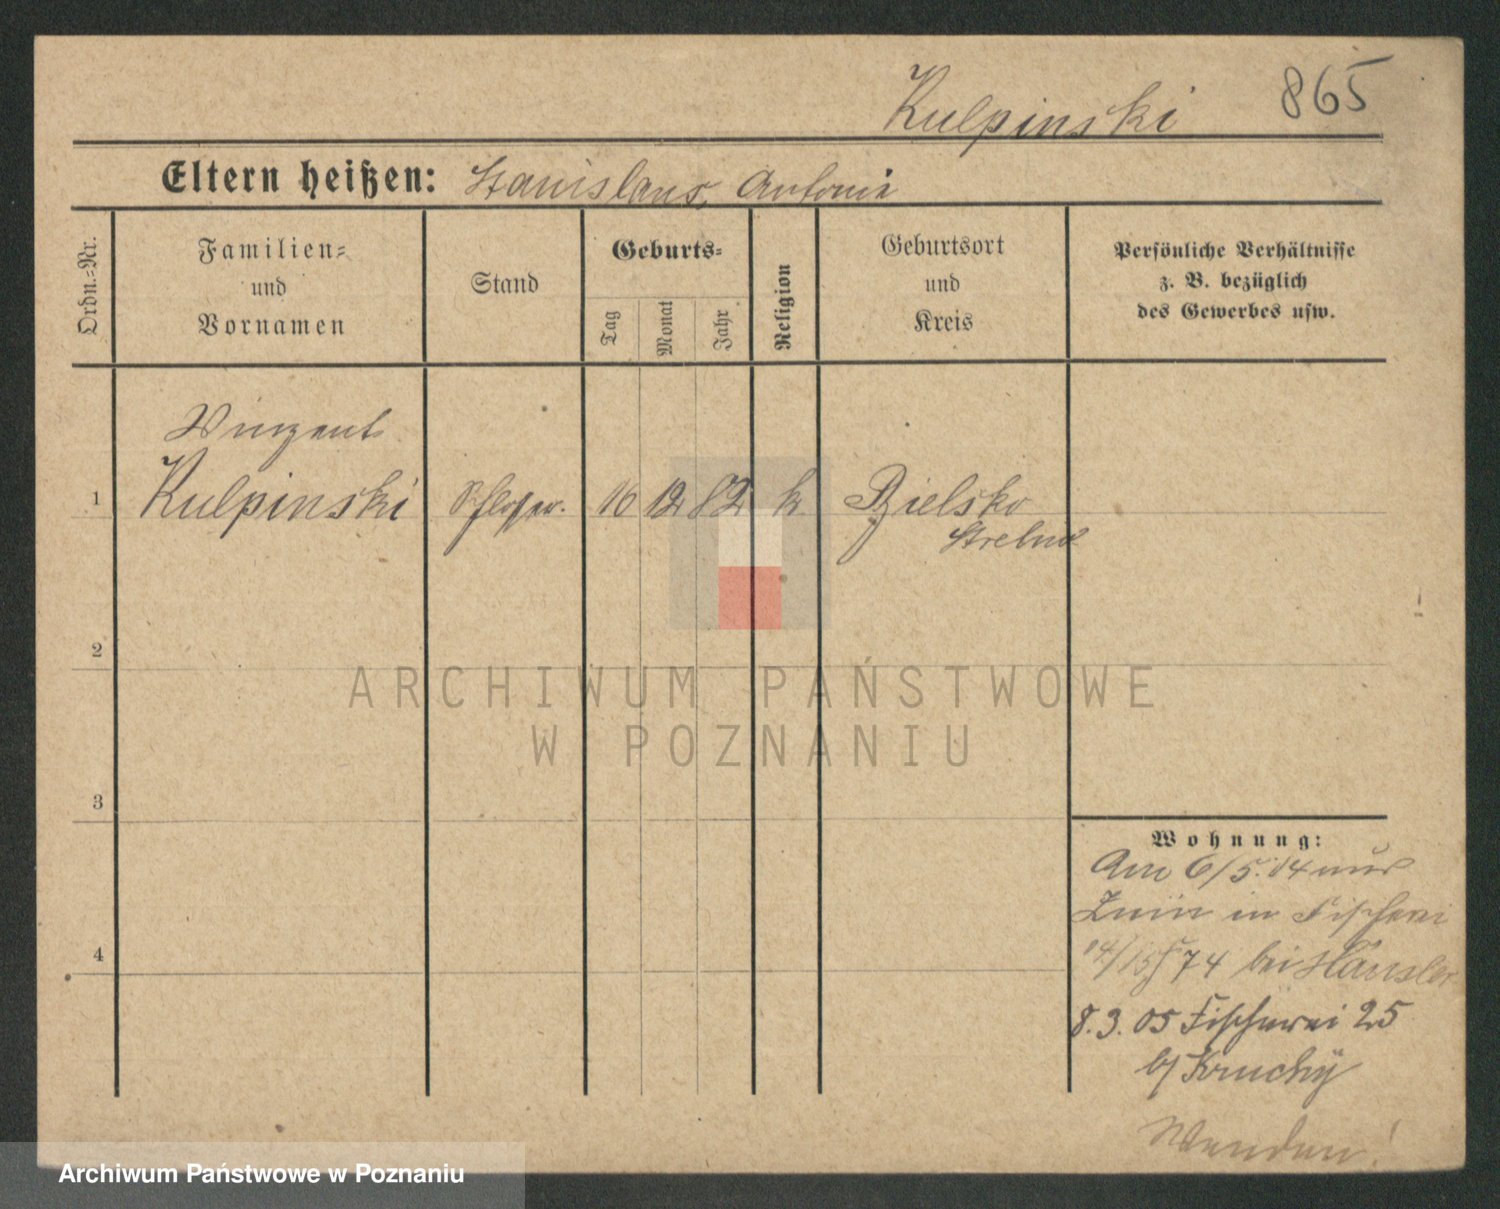 Kulpinski 865
Eltern heißen: Stanislaus, Antonie
Ordn.-Nr.
Familien-
und
Vornamen
Stand
Geburts-
Tag
Monat
Jahr
Religion
Geburtsort
und
Kreis
Persönliche Verhältnisse
z. B. bezüglich
des Gewerbes usw.
Vinzent
1 Kulpinski Schlosser. 16 12 82 k Bielsko
Strelno
2
3
4
Wohnung:
Am 6/5.04 aus
Znin in Fischerei
74 bei Hänsler
8.3.05 Fischerei 25
b/ Kruchÿ
Wenden!
ARCHIWUM PAŃSTWOWE
W POZNANIU
Archiwum Państwowe w Poznaniu